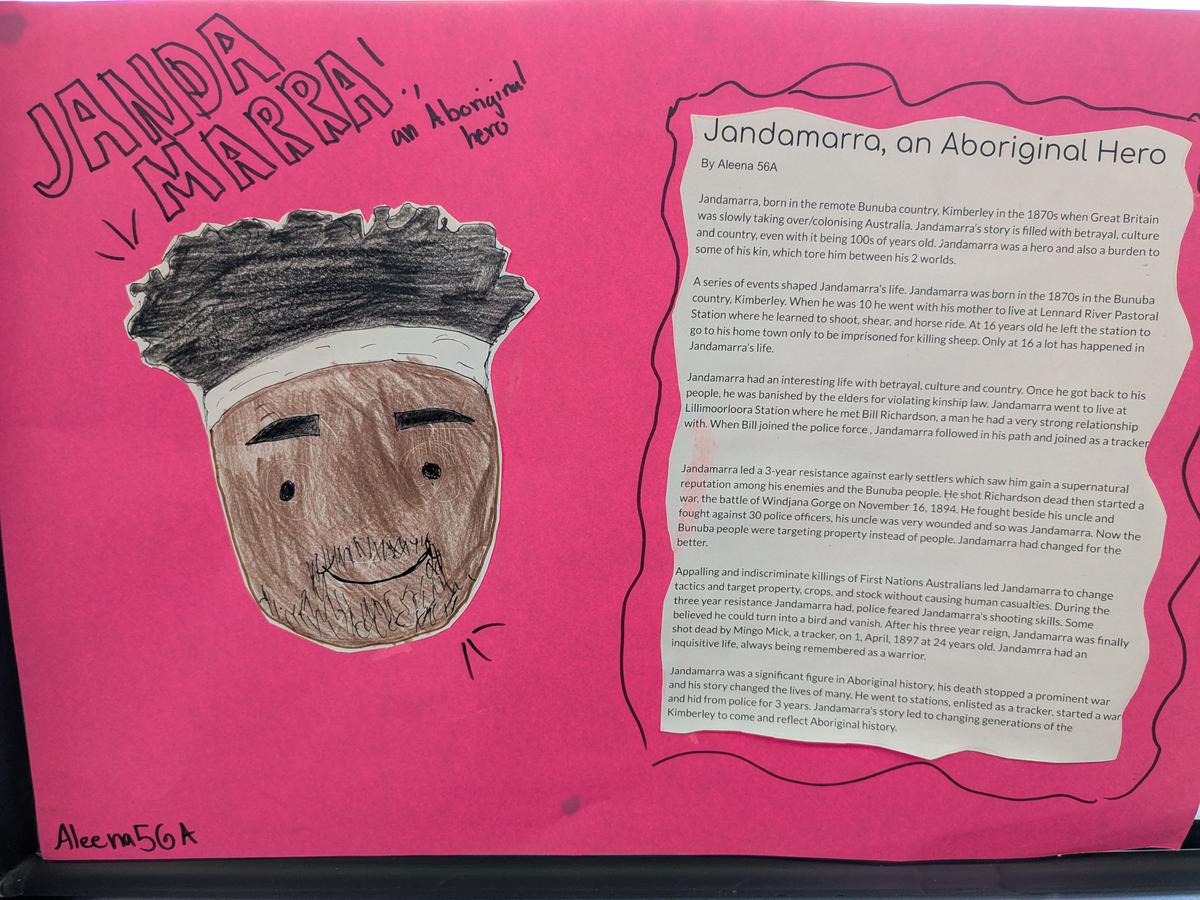 JANDA
MARRA!,
an Aboriginal
hero
Jandamarra, an Aboriginal Hero
By Aleena 56A
Jandamarra, born in the remote Bunuba country, Kimberley in the 1870s when Great Britain
was slowly taking over/colonising Australia. Jandamarra's story is filled with betrayal, culture
and country, even with it being 100s of years old. Jandamarra was a hero and also a burden to
some of his kin, which tore him between his 2 worlds.
A series of events shaped Jandamarra's life. Jandamarra was born in the 1870s in the Bunuba
country, Kimberley. When he was 10 he went with his mother to live at Lennard River Pastoral
Station where he learned to shoot, shear, and horse ride. At 16 years old he left the station to
go to his home town only to be imprisoned for killing sheep. Only at 16 a lot has happened in
Jandamarra's life.
Jandamarra had an interesting life with betrayal, culture and country. Once he got back to his
people, he was banished by the elders for violating kinship law. Jandamarra went to live at
Lillimoorloora Station where he met Bill Richardson, a man he had a very strong relationship
with. When Bill joined the police force , Jandamarra followed in his path and joined as a tracker
Jandamarra led a 3-year resistance against early settlers which saw him gain a supernatural
reputation among his enemies and the Bunuba people. He shot Richardson dead then started a
war, the battle of Windjana Gorge on November 16, 1894. He fought beside his uncle and
fought against 30 police officers, his uncle was very wounded and so was Jandamarra. Now the
Bunuba people were targeting property instead of people. Jandamarra had changed for the
better.
Appalling and indiscriminate killings of First Nations Australians led Jandamarra to change
tactics and target property, crops, and stock without causing human casualties. During the
three year resistance Jandamarra had, police feared Jandamarra's shooting skills. Some
believed he could turn into a bird and vanish. After his three year reign, Jandamarra was finally
shot dead by Mingo Mick, a tracker, on 1, April, 1897 at 24 years old. Jandamrra had an
inquisitive life, always being remembered as a warrior.
Jandamarra was a significant figure in Aboriginal history, his death stopped a prominent war
and his story changed the lives of many. He went to stations, enlisted as a tracker, started a war
and hid from police for 3 years. Jandamarra's story led to changing generations of the
Kimberley to come and reflect Aboriginal history.
Aleena56A